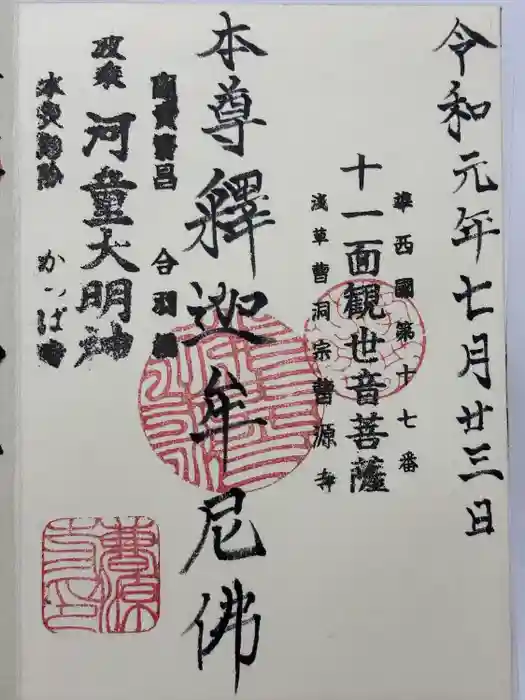 令和元年七月廿三日
準西國第十七番
十一面観世音菩薩
浅草曹洞宗曹源寺
本尊釋迦牟尼佛
合羽
河童大明神
かっぱ
曹源
寺印